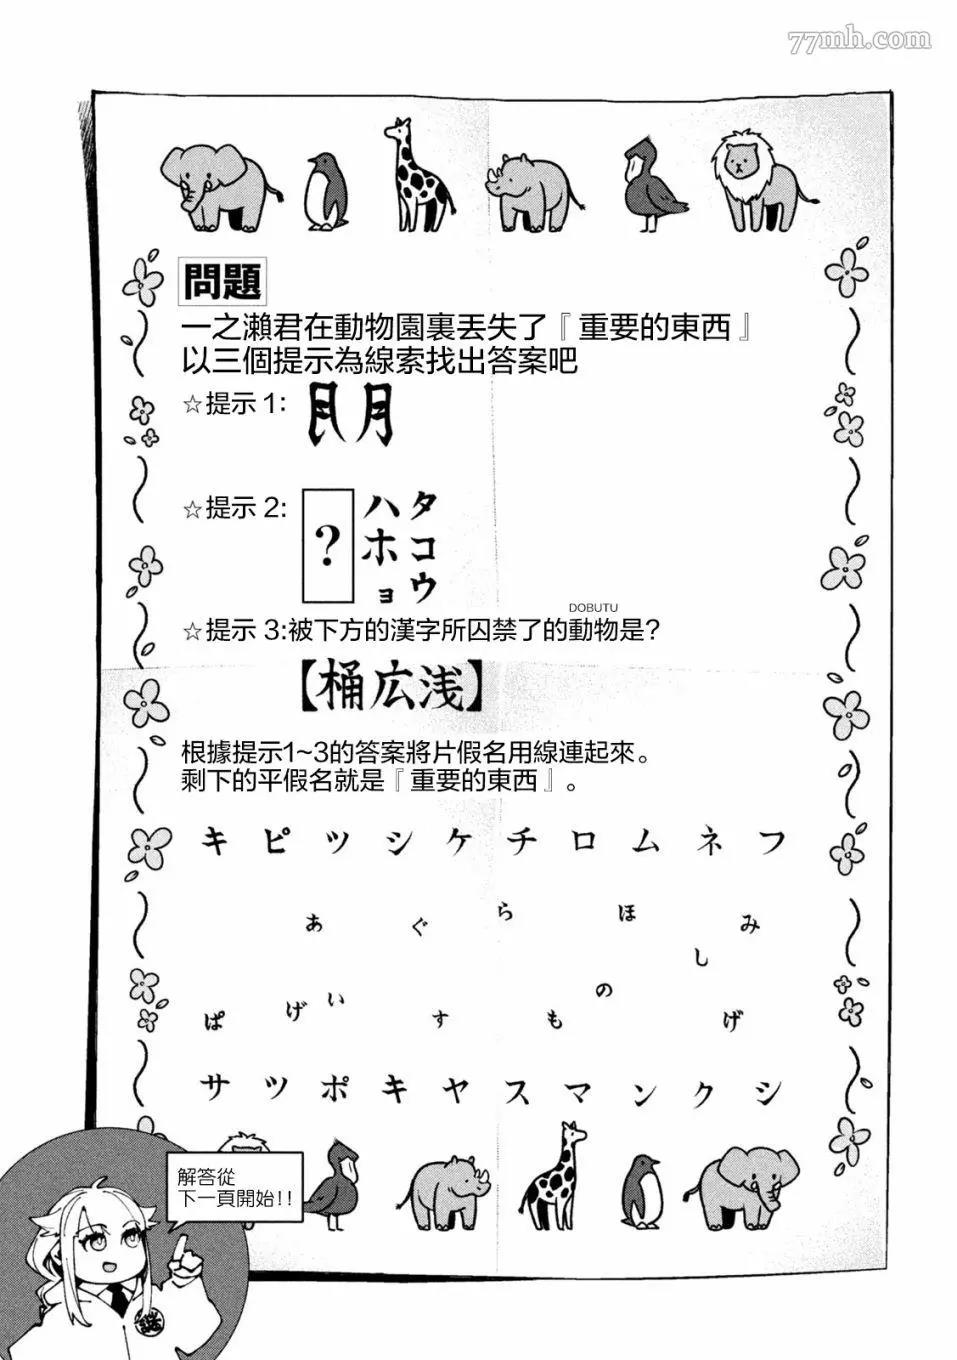 77mh.com
問題
一之瀨君在動物園裏丟失了『重要的東西』
以三個提示為線索找出答案吧
☆提示 1:
月
☆提示 2:
タコウ
ハホョ
?
DOBUTU
☆提示 3:被下方的漢字所囚禁了的動物是?
【桶広浅】
根據提示1~3的答案將片假名用線連起來。
剩下的平假名就是『重要的東西』。
キ ピ ツ シ ケ チ ロ ム ネ フ
あ ぐ ら ほ み
し
ぱ げ い す も の げ
サ ツ ポ キ ヤ ス マ ン ク シ
解答從
下一頁開始!!
謎